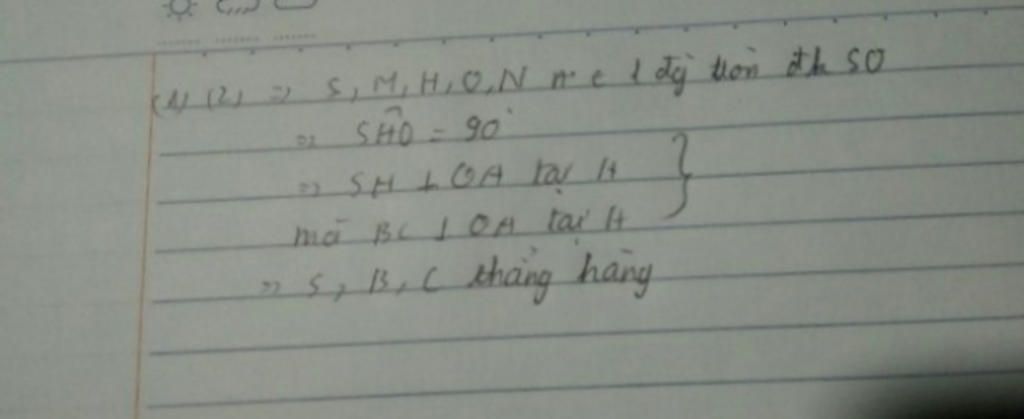 (1) (2) => S, M, H, O, N ∈ 1 đg tròn đk SO
=> SĤO = 90°
=> SH ⊥ OA tại H
mà BC ⊥ OA tại H
=> S, B, C thẳng hàng